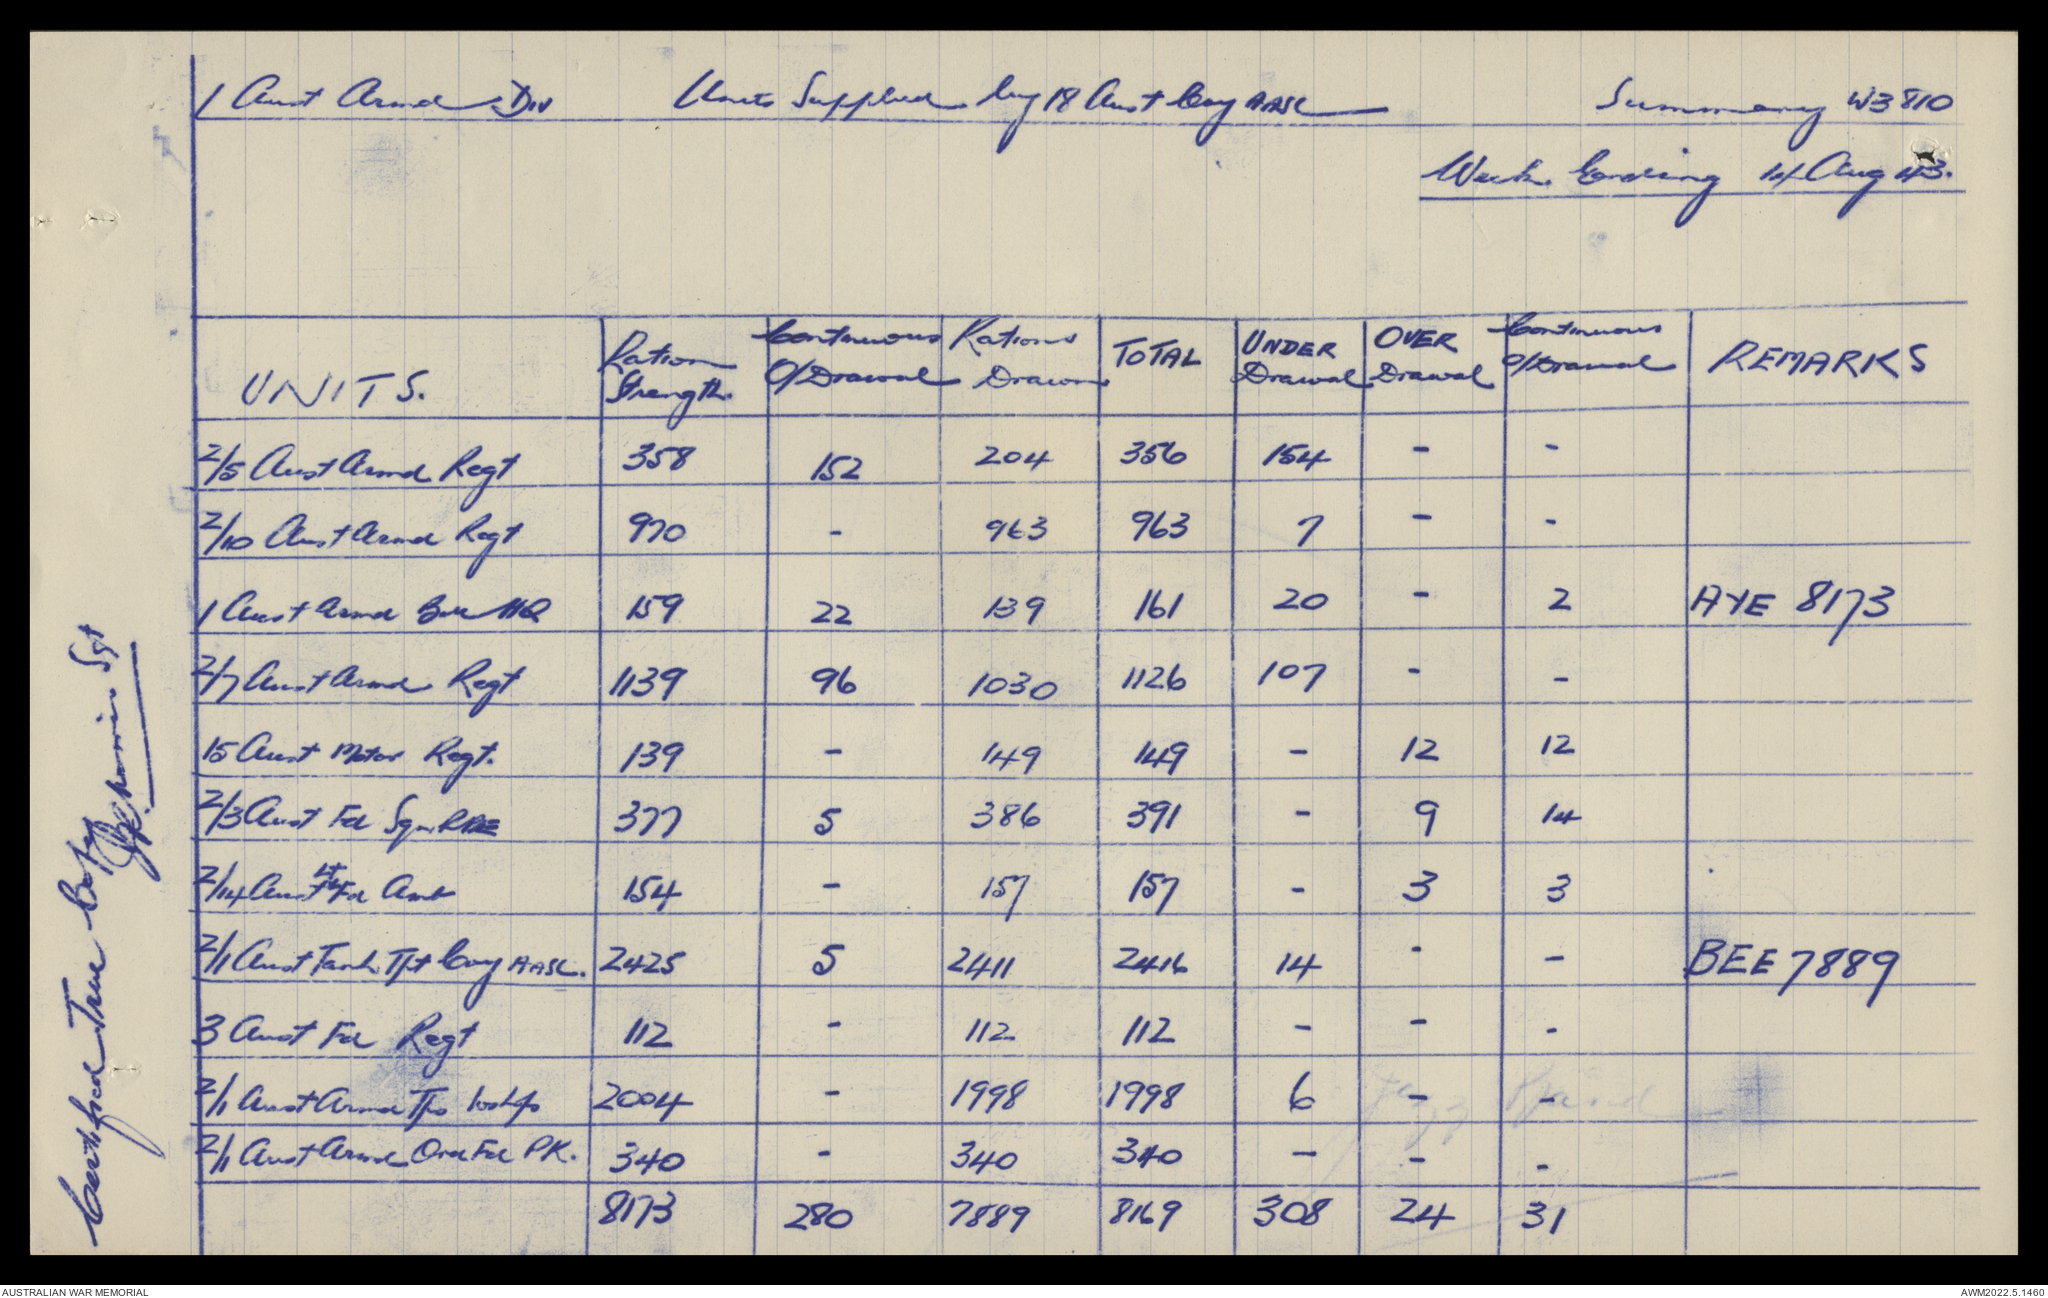 1 Aust Armd Div Units Supplied by 18 Aust Coy AASC Summary W3810
Week Ending 14 Aug 43.
UNITS. Ration Strength. Continuous O/Drawal Rations Drawn TOTAL UNDER Drawal OVER Drawal Continuous O/Drawal REMARKS
2/5 Aust Armd Regt 358 152 204 356 154 - -
2/10 Aust Armd Regt 970 - 963 963 7 - -
1 Aust Armd Bde HQ 159 22 139 161 20 - 2 AYE 8173
2/7 Aust Armd Regt 1139 96 1030 1126 107 - -
15 Aust Motor Regt. 139 - 149 149 - 12 12
2/3 Aust Fd Sqn RAE 377 5 386 391 - 9 14
2/14 Aust Lt Fd Amb 154 - 157 157 - 3 3
2/1 Aust Tank Tpt Coy AASC. 2425 5 2411 2416 14 - - BEE 7889
3 Aust Fd Regt 112 - 112 112 - - -
2/1 Aust Armd Tps Wkshps 2004 - 1998 1998 6 - -
2/1 Aust Armd Ord Fd PK. 340 - 340 340 - - -
8173 280 7889 8169 308 24 31
Certified True Copy
Sgt
AUSTRALIAN WAR MEMORIAL AWM2022.5.1460